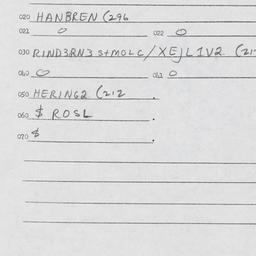 020 HANBREN (296
021 0 022 0
030 RIND3RN3 S+MOLC/XEJL1V2 (21
040 0 041 0
050 HERING2 (212 .
060 $ ROSL .
070 $ .